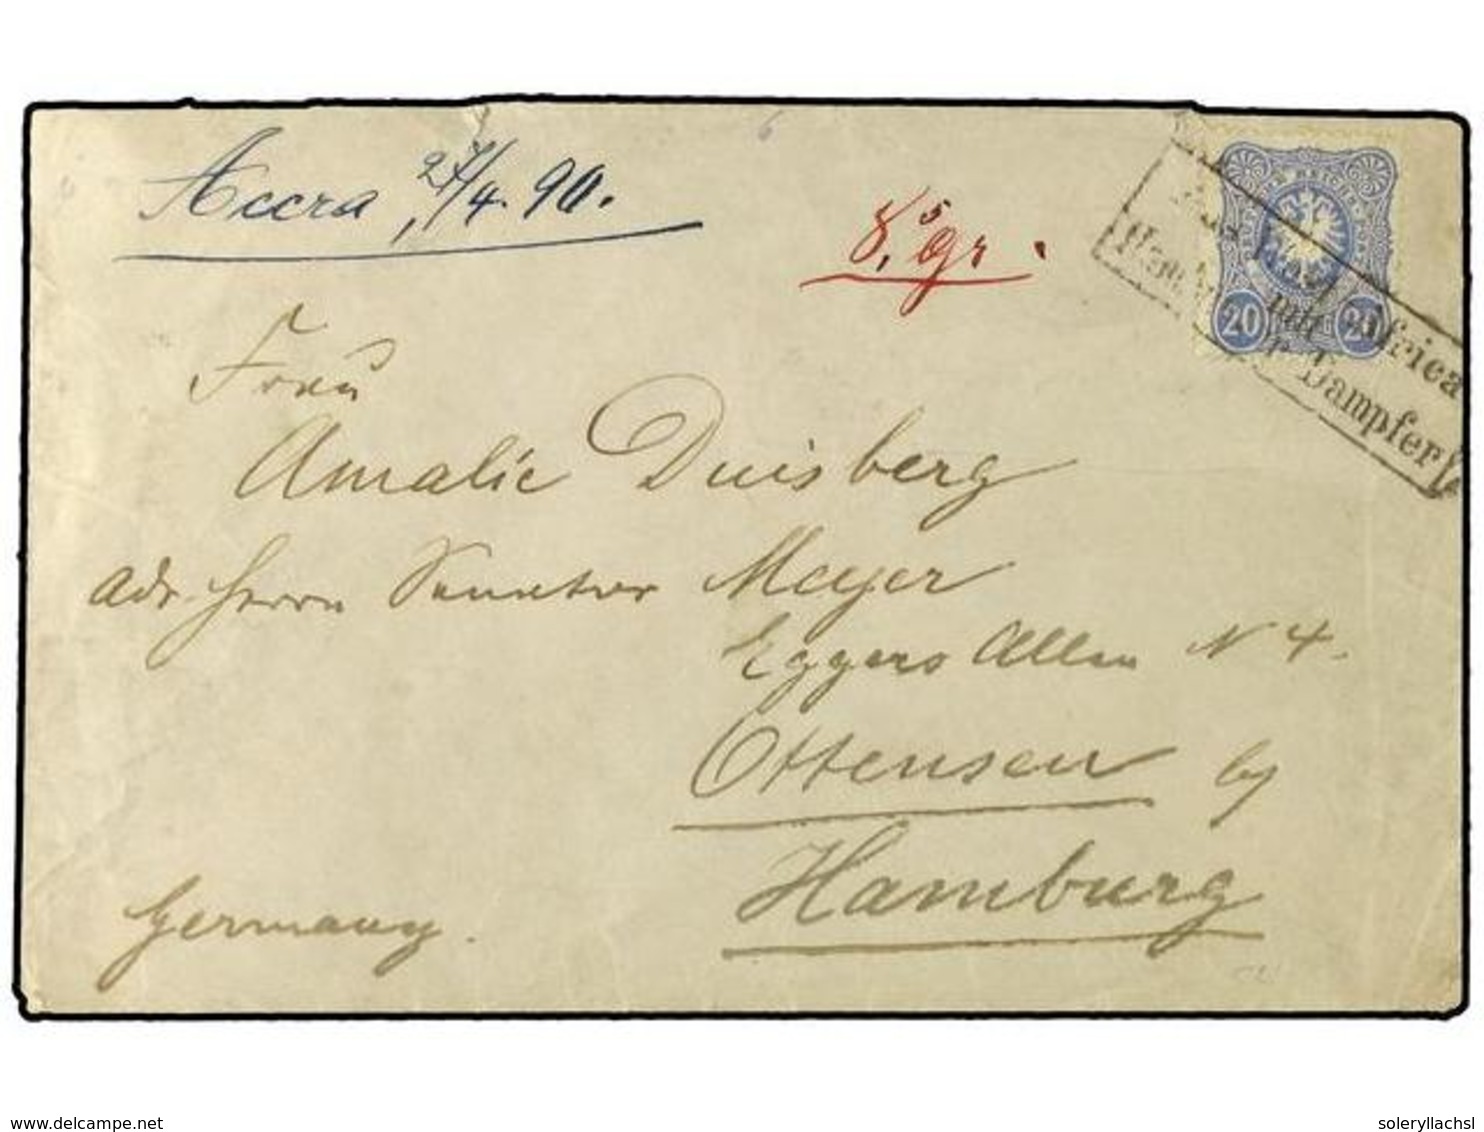 Accra, 27/4. 90.
8,5 gr.
20 20
Aus West-Africa
mit
Hamburger Dampfer
Frau
Amalie Duisberg
adr. Herrn Senator Meyer
Eggers Allee N 4.
Ottensen by
Hamburg
Germany.
www.delcampe.net
soleryllachsl